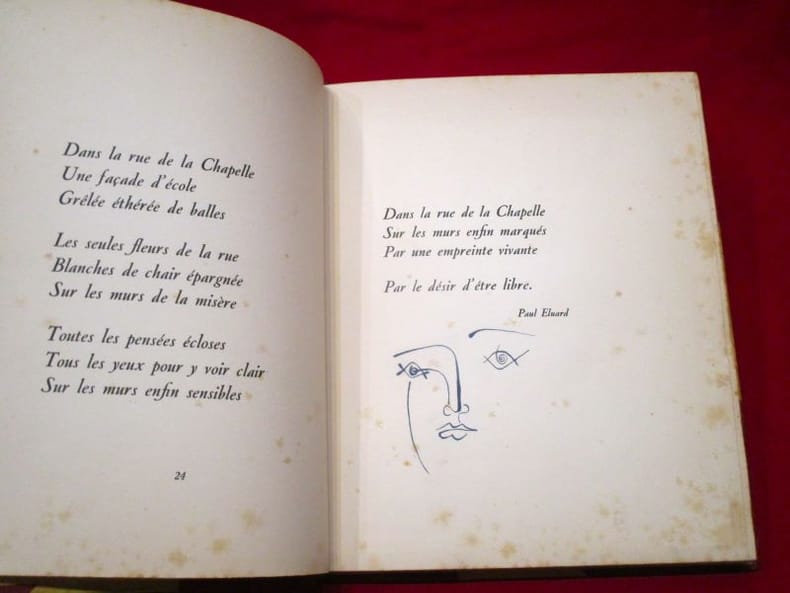 Dans la rue de la Chapelle
Une façade d'école
Grêlée éthérée de balles
Les seules fleurs de la rue
Blanches de chair épargnée
Sur les murs de la misère
Toutes les pensées écloses
Tous les yeux pour y voir clair
Sur les murs enfin sensibles
24
Dans la rue de la Chapelle
Sur les murs enfin marqués
Par une empreinte vivante
Par le désir d'être libre.
Paul Eluard